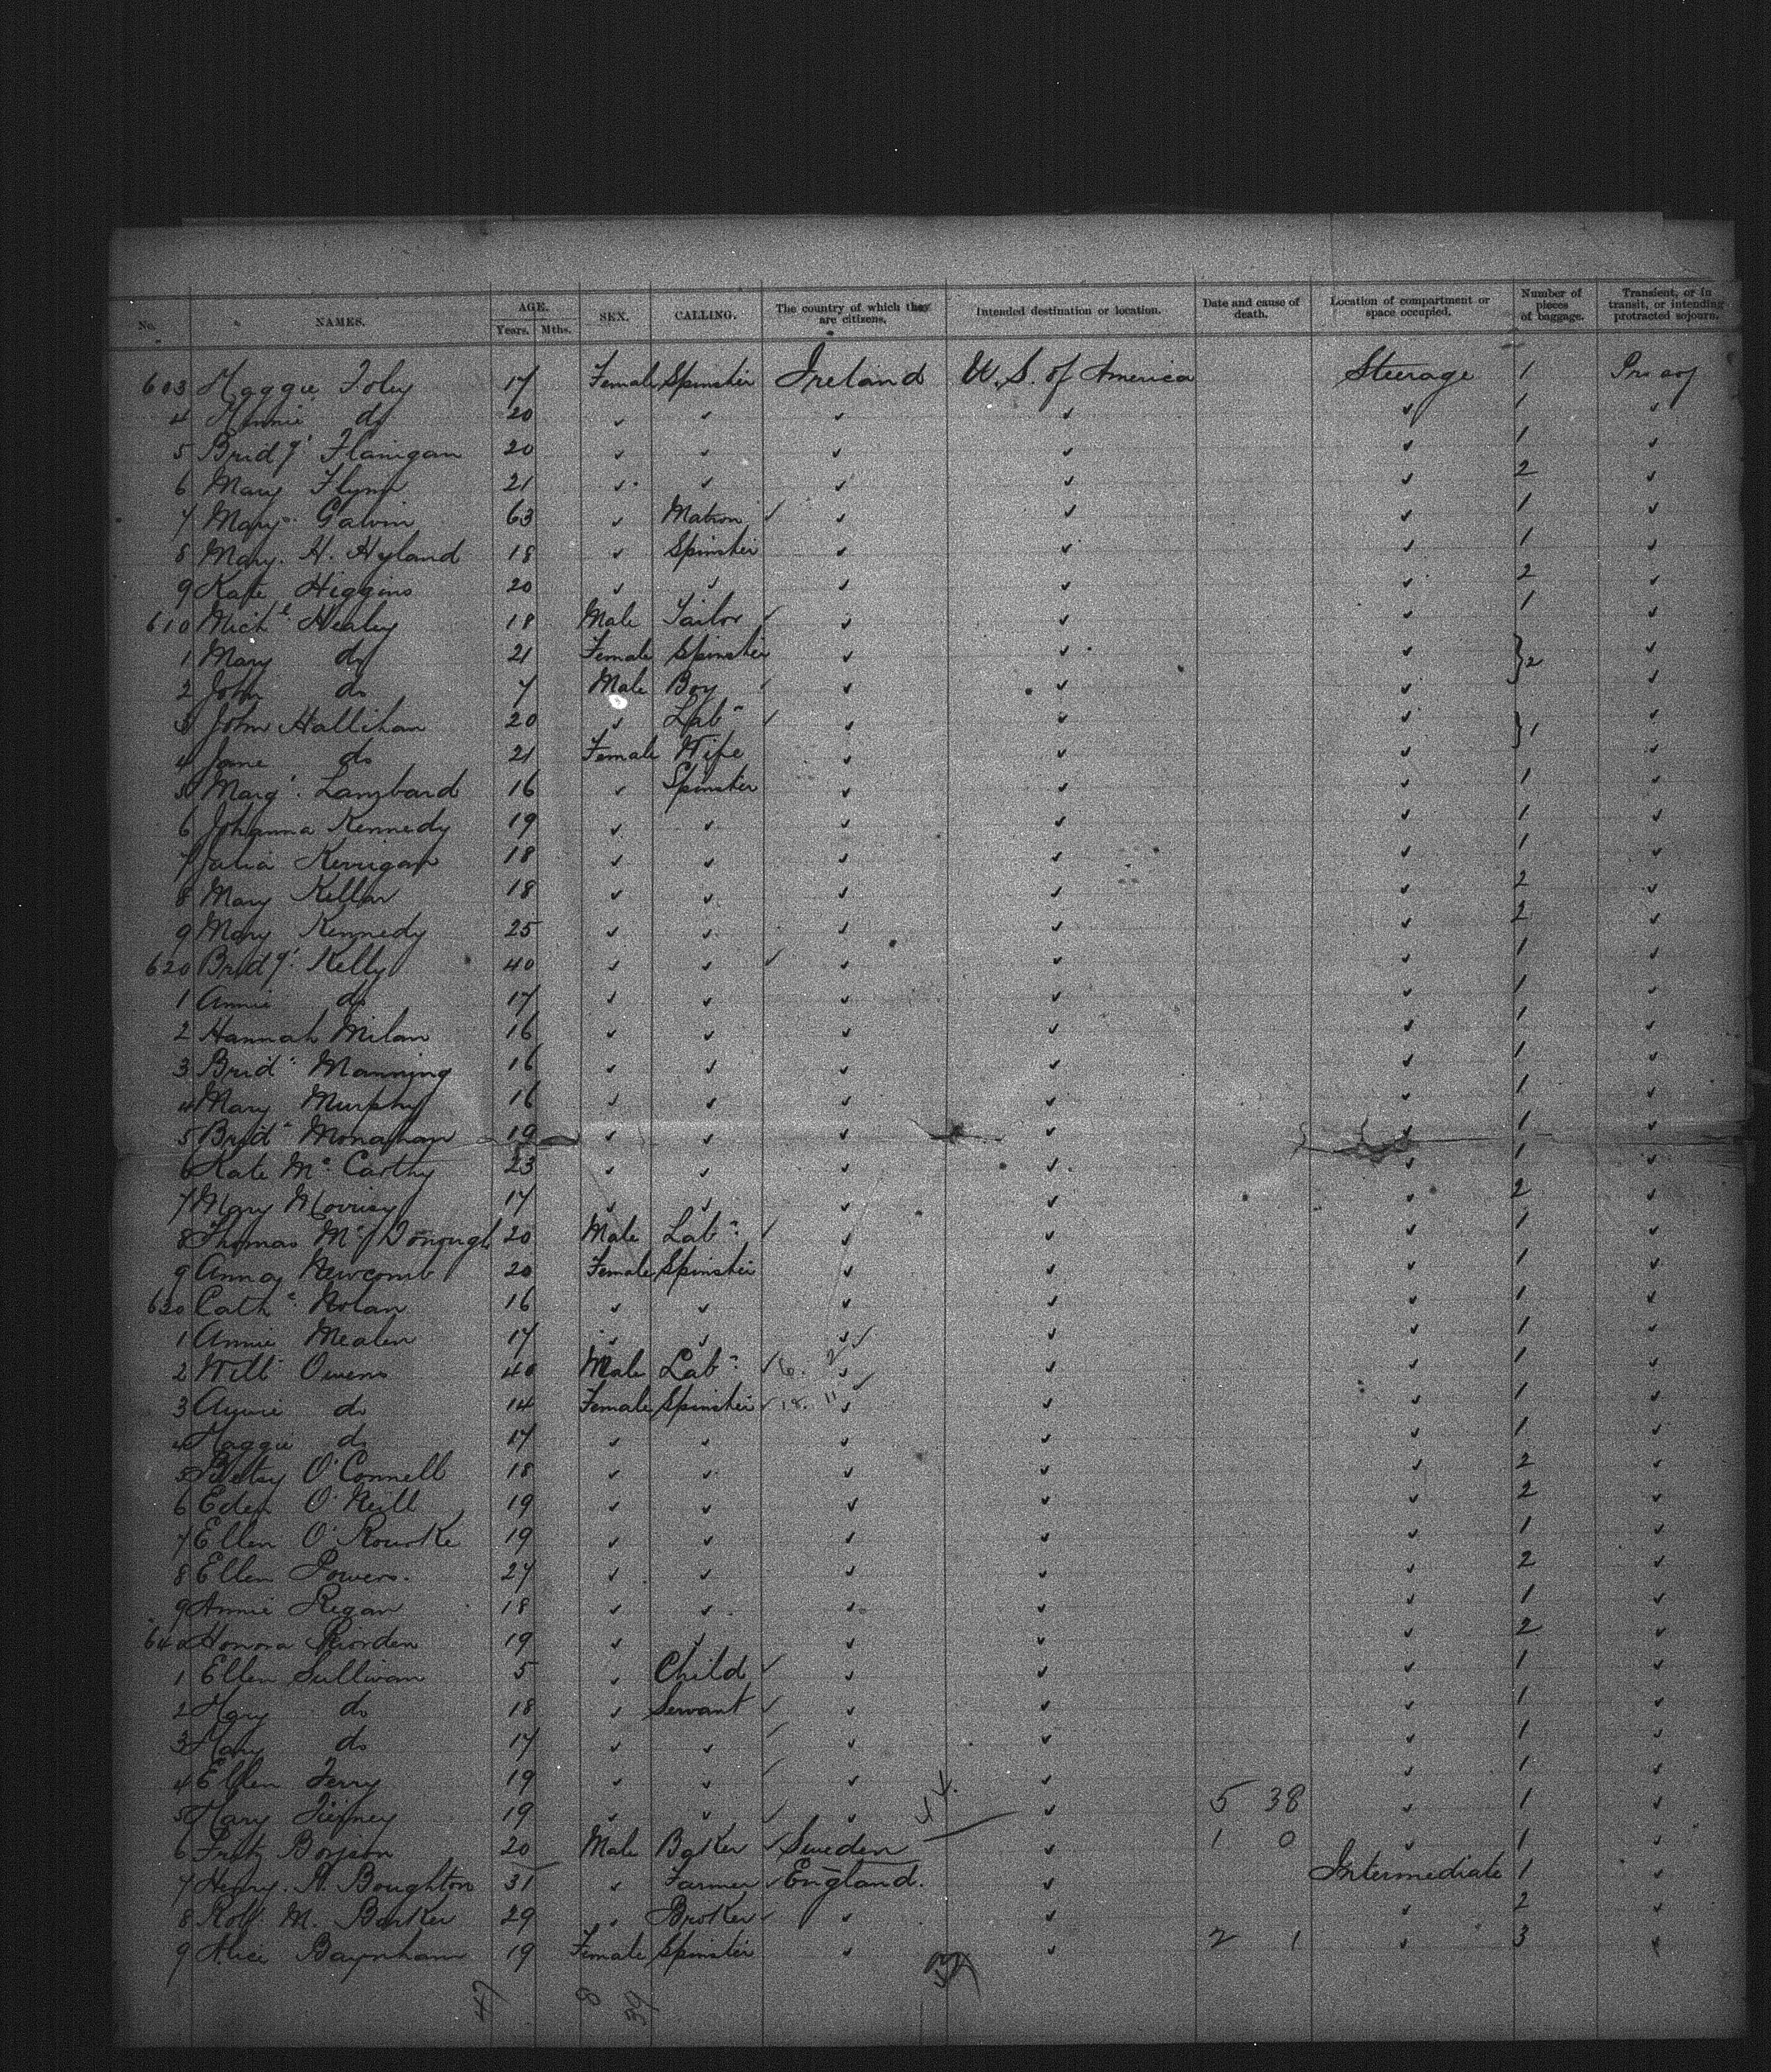 No. NAMES. AGE. Years. Mths. SEX. CALLING. The country of which they are citizens. Intended destination or location. Date and cause of death. Location of compartment or space occupied. Number of pieces of baggage. Transient, or in transit, or intending protracted sojourn.
603 Maggie Foley 17 Female Spinster Ireland U.S. of America Steerage 1
4 Minnie do 20 1
5 Bridgt Flanigan 20 1
6 Mary Flynn 21 2
7 Mary Galvin 63 Matron 1
8 Mary. H. Hyland 18 Spinster 1
9 Kate Higgins 20 2
610 Michl Healey 18 Male Tailor 1
1 Mary do 21 Female Spinster } 2
2 John do 7 Male Boy
3 John Hallihan 20 Labr } 1
4 Jane do 21 Female Wife
5 Margt. Lambard 16 Spinster 1
6 Johanna Kennedy 19 1
7 Julia Kerrigan 18 1
8 Mary Kellar 18 2
9 Mary Kennedy 25 2
620 Bridgt. Kelly 40 1
1 Annie do 17 1
2 Hannah Milan 16 1
3 Bridt Manning 16 1
4 Mary Murphy 16 1
5 Bridt Monaghan 19 1
6 Kate Mc Carthy 23 1
7 Mary Morrisy 17 2
8 Thomas Mc Donough 20 Male Labr 1
9 Anna Newcomb 20 Female Spinster 1
630 Cathe Nolan 16 1
1 Annie Mealen 17 1
2 Willm Owens 40 Male Labr 1
3 do 14 Female Spinster 1
4 Maggie do 17 1
5 Betsy O'Connell 18 2
6 O'Neill 19 2
7 Ellen O'Rourke 19 1
8 Ellen Powers. 27 2
9 Annie Regan 18 1
640 Honora Riorden 19 2
1 Ellen Sullivan 5 Child 1
2 Mary do 18 Servant 1
3 Mary do 17 1
4 Ellen Terry 19 1
5 Mary Tierney 19 5 38 1
6 Fritz Borjson 20 Male Baker Sweden 1 0 1
7 Henry. A. Boughton 31 Farmer England. Intermediate 1
8 Robt M. Barker 29 Broker 2
9 Alice Baynham 19 Female Spinster 2 1 3
47 8 39